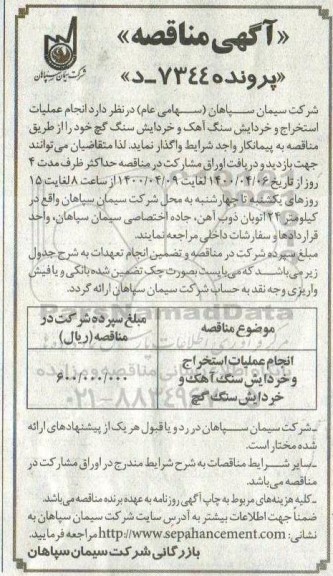 «آگهی مناقصه»
«پرونده ۷۳۴۴ـد»
شرکت سیمان سپاهان
شرکت سیمان سپاهان (سهامی عام) در نظر دارد انجام عملیات
استخراج و خردایش سنگ آهک و خردایش سنگ گچ خود را از طریق
مناقصه به پیمانکار واجد شرایط واگذار نماید. لذا متقاضیان می‌توانند
جهت بازدید و دریافت اوراق مشارکت در مناقصه حداکثر ظرف مدت ۴
روز از تاریخ ۱۴۰۰/۰۴/۰۶ لغایت ۱۴۰۰/۰۴/۰۹ از ساعت ۸ لغایت ۱۵
روزهای یکشنبه تا چهارشنبه به محل شرکت سیمان سپاهان واقع در
کیلومتر ۲۴ اتوبان ذوب آهن، جاده اختصاصی سیمان سپاهان، واحد
قراردادها و سفارشات داخلی مراجعه نمایند.
مبلغ سپرده شرکت در مناقصه و تضمین انجام تعهدات به شرح جدول
زیر می‌باشد که می‌بایست بصورت چک تضمین شده بانکی و یا فیش
واریزی وجه نقد به حساب شرکت سیمان سپاهان ارائه گردد.
موضوع مناقصه
مبلغ سپرده شرکت در
مناقصه (ریال)
انجام عملیات استخراج
و خردایش سنگ آهک و
خردایش سنگ گچ
۶۰۰/۰۰۰/۰۰۰
ـ شرکت سیمان سپاهان در رد و یا قبول هر یک از پیشنهادهای ارائه
شده مختار است.
ـ سایر شرایط مناقصات به شرح شرایط مندرج در اوراق مشارکت در
مناقصه می‌باشد.
ـ کلیه هزینه‌های مربوط به چاپ آگهی روزنامه به عهده برنده مناقصه می‌باشد.
ضمناً جهت اطلاعات بیشتر به آدرس سایت شرکت سیمان سپاهان به
نشانی: http://www.sepahancement.com مراجعه فرمایید.
بازرگانی شرکت سیمان سپاهان